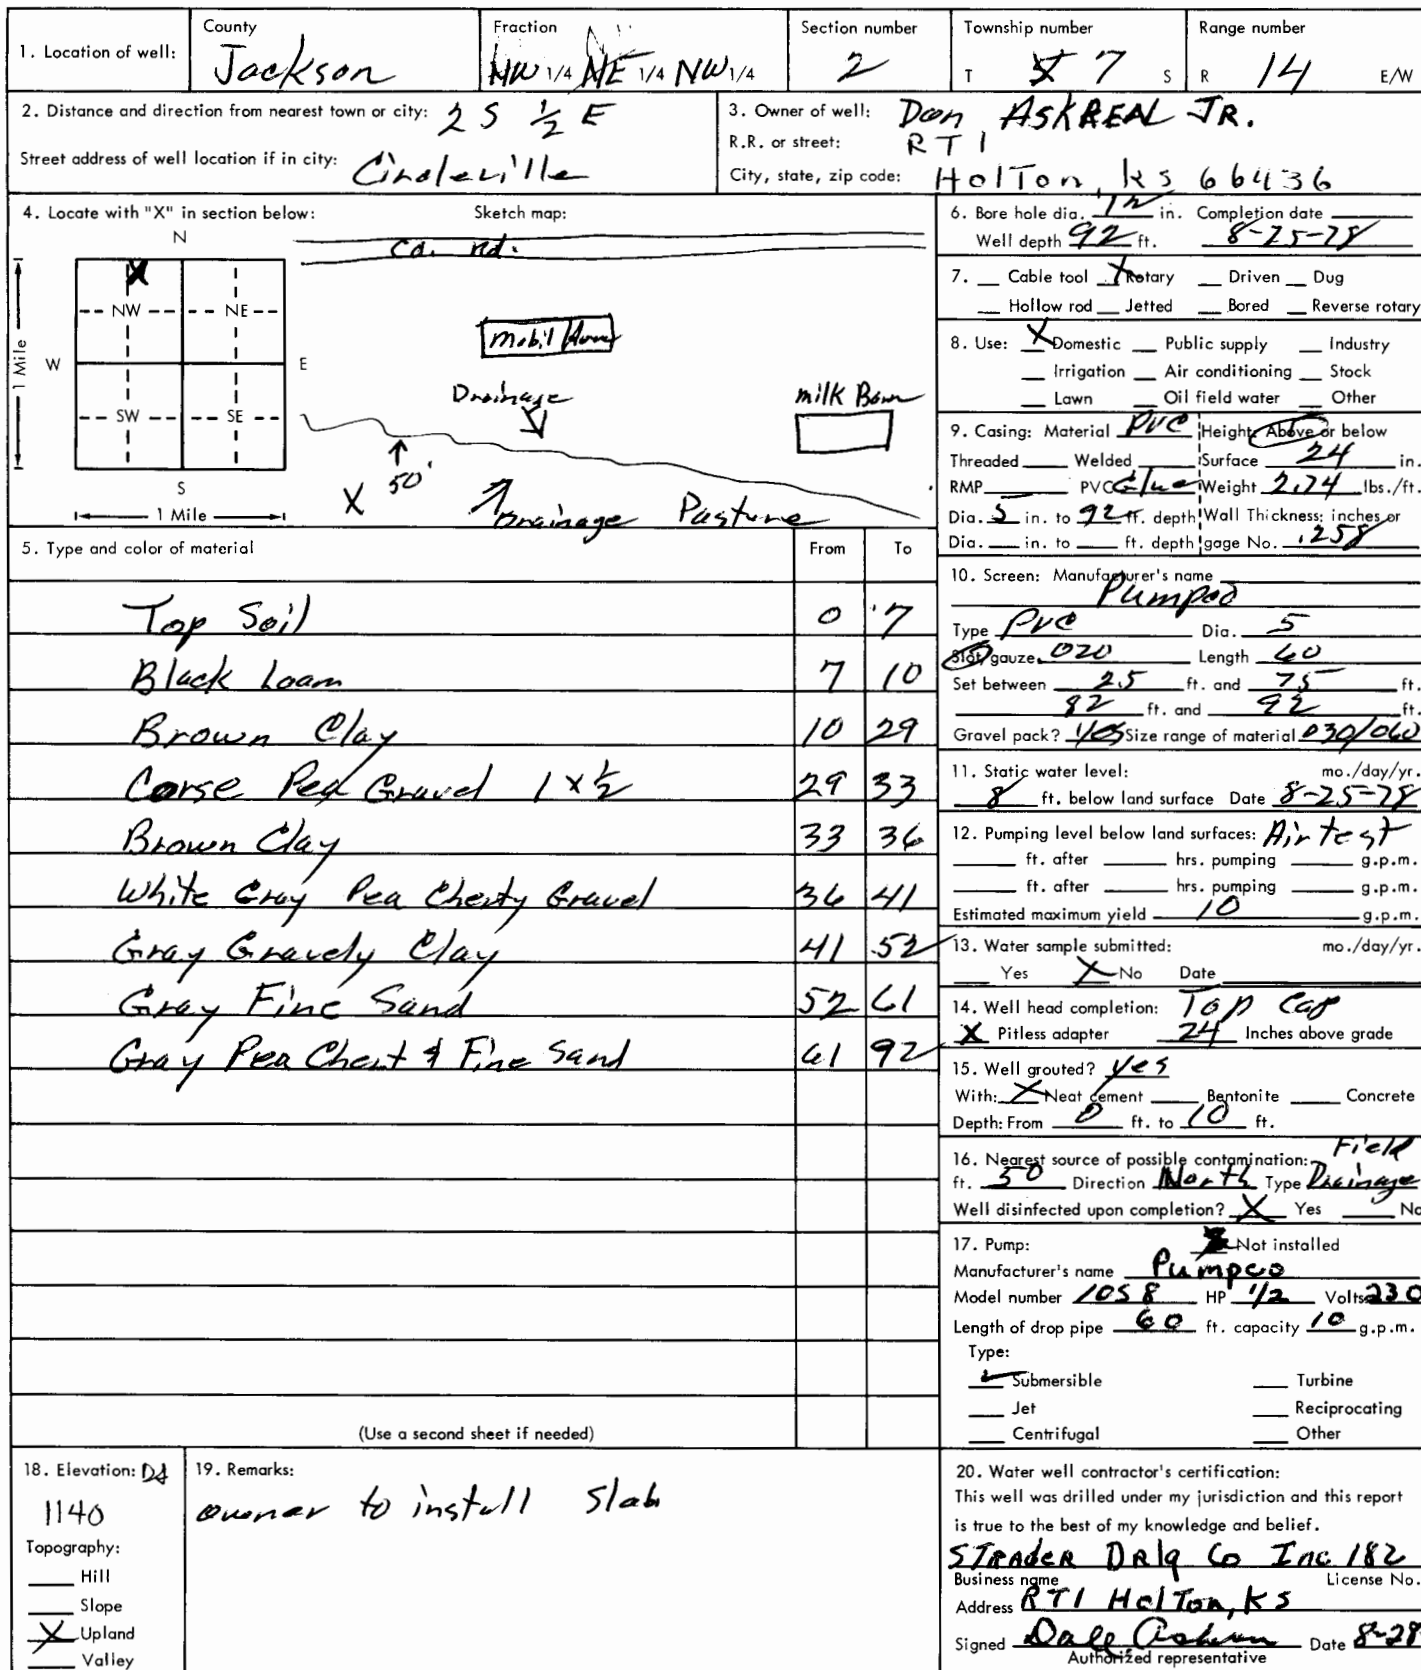 1. Location of well:
County
Jackson
Fraction
NW 1/4 NE 1/4 NW 1/4
Section number
2
Township number
T 7 S
Range number
R 14 E/W
2. Distance and direction from nearest town or city: 2 S 1/2 E
Street address of well location if in city:
3. Owner of well: Don ASKREAL JR.
R.R. or street: RT 1
City, state, zip code: HolTon, ks 66436
4. Locate with "X" in section below:
Sketch map:
N
NW NE
W E
SW SE
S
1 Mile
1 Mile
X
co. rd.
Mobil Home
Drainage
milk Barn
50'
X
Drainage Pasture
5. Type and color of material From To
Top Soil 0 7
Black Loam 7 10
Brown Clay 10 29
Corse Pea Gravel 1 x 1/2 29 33
Brown Clay 33 36
White Gray Pea Cherty Gravel 36 41
Gray Gravely Clay 41 52
Gray Fine Sand 52 61
Gray Pea Chert & Fine Sand 61 92
(Use a second sheet if needed)
6. Bore hole dia. in. Completion date
Well depth 92 ft. 8-25-78
7. Cable tool X Rotary Driven Dug
Hollow rod Jetted Bored Reverse rotary
8. Use: X Domestic Public supply Industry
Irrigation Air conditioning Stock
Lawn Oil field water Other
9. Casing: Material PVC Height: Above or below
Threaded Welded Surface 24 in.
RMP PVC Glue Weight 2.74 lbs./ft.
Dia. 5 in. to 92 ft. depth Wall Thickness: inches or
Dia. in. to ft. depth gage No. .258
10. Screen: Manufacturer's name
Type PVC Dia. 5
Slot/gauze 020 Length 60
Set between 25 ft. and 75 ft.
82 ft. and 92 ft.
Gravel pack? Yes Size range of material 030/060
11. Static water level: mo./day/yr.
8 ft. below land surface Date 8-25-78
12. Pumping level below land surfaces: Air test
ft. after hrs. pumping g.p.m.
ft. after hrs. pumping g.p.m.
Estimated maximum yield 10 g.p.m.
13. Water sample submitted: mo./day/yr.
Yes X No Date
14. Well head completion: Top Cap
X Pitless adapter 24 Inches above grade
15. Well grouted? yes
With: X Neat cement Bentonite Concrete
Depth: From 0 ft. to 10 ft.
16. Nearest source of possible contamination: Field
ft. 50 Direction North Type Drainage
Well disinfected upon completion? X Yes No
17. Pump: Not installed
Manufacturer's name Pumpco
Model number 1058 HP 1/2 Volts 230
Length of drop pipe 60 ft. capacity 10 g.p.m.
Type:
Submersible Turbine
Jet Reciprocating
Centrifugal Other
18. Elevation:
1140
Topography:
Hill
Slope
X Upland
Valley
19. Remarks:
owner to install slab
20. Water well contractor's certification:
This well was drilled under my jurisdiction and this report
is true to the best of my knowledge and belief.
STRADER DRlg Co Inc 182
Business name License No.
Address RT1 HolTon, KS
Signed Date 8-28-
Authorized representative